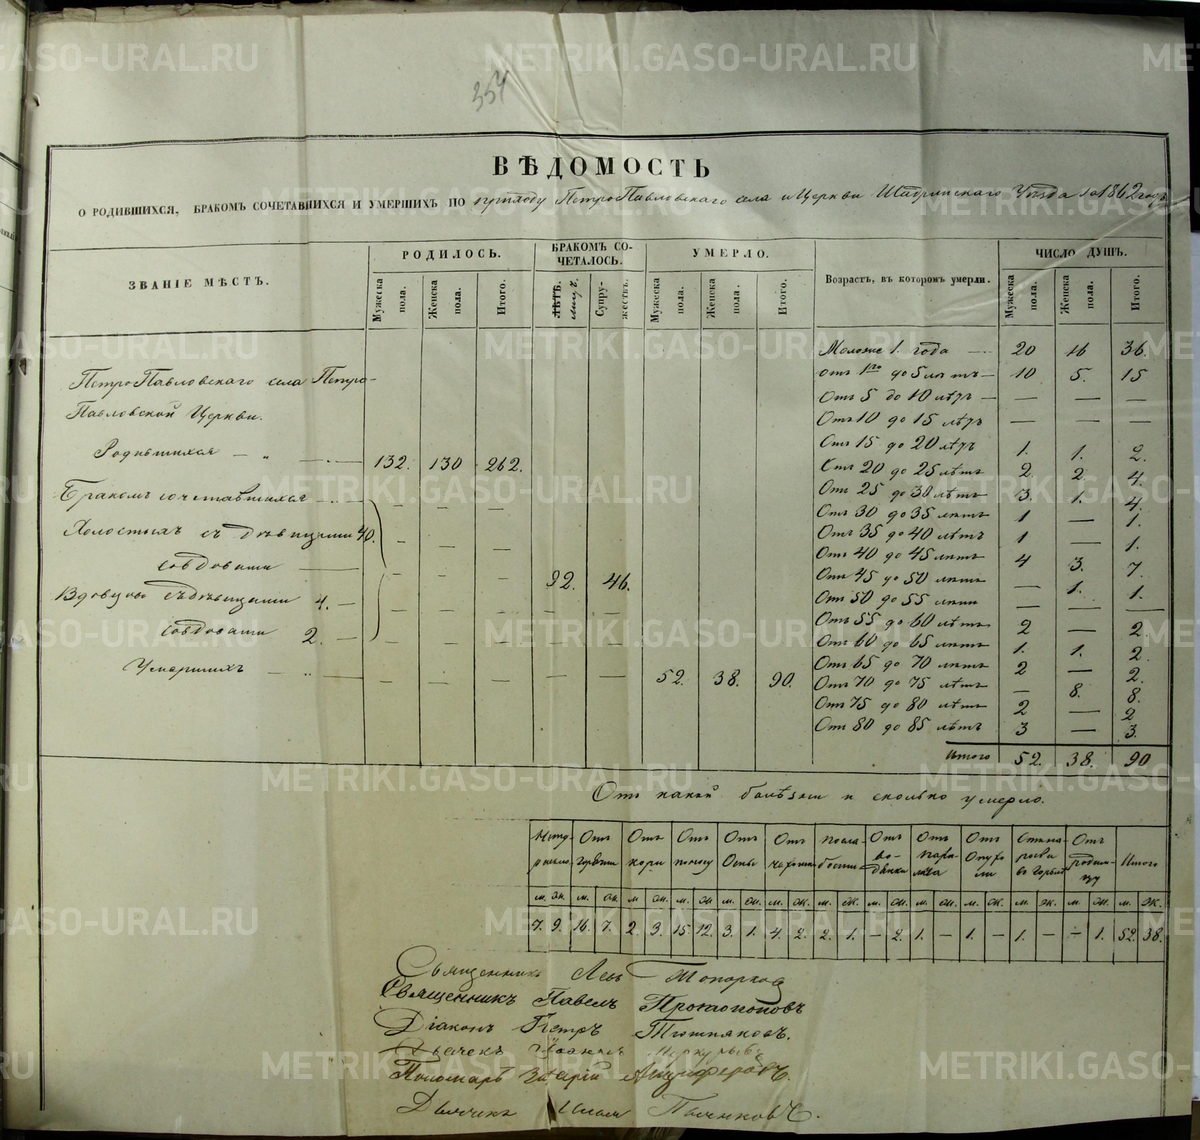 354
ВѢДОМОСТЬ
О РОДИВШИХСЯ, БРАКОМЪ СОЧЕТАВШИХСЯ И УМЕРШИХЪ ПО приходу ПетроПавловскаго села и Церкви Шадринскаго Уѣзда за 1862 годъ
ЗВАНІЕ МѢСТЪ.
РОДИЛОСЬ.
Мужеска пола.
Женска пола.
Итого.
БРАКОМЪ СОЧЕТАЛОСЬ.
Супружествъ.
УМЕРЛО.
Мужеска пола.
Женска пола.
Итого.
Возрастъ, въ которомъ умерли.
ЧИСЛО ДУШЪ.
Мужеска пола.
Женска пола.
Итого.
ПетроПавловскаго села Петро-
Павловской Церкви.
Родившихся — „ — 132. 130 262.
Бракомъ сочетавшихся
Холостыхъ съ дѣвицами 40.
со вдовами —
92. 46.
Вдовцовъ съ дѣвицами 4. —
со вдовами 2. —
Умершихъ — „ — 52. 38. 90.
Моложе 1. года — 20 16 36.
Отъ 1го до 5 лѣтъ — 10 5. 15
Отъ 5 до 10 лѣтъ — — — —
Отъ 10 до 15 лѣтъ — — —
Отъ 15 до 20 лѣтъ 1. 1. 2.
Отъ 20 до 25 лѣтъ 2. 2 4.
Отъ 25 до 30 лѣтъ 3. 1. 4.
Отъ 30 до 35 лѣтъ 1 — 1.
Отъ 35 до 40 лѣтъ 1 — 1.
Отъ 40 до 45 лѣтъ 4 3. 7.
Отъ 45 до 50 лѣтъ — 1. 1.
Отъ 50 до 55 лѣтъ — — —
Отъ 55 до 60 лѣтъ 2 — 2.
Отъ 60 до 65 лѣтъ 1. 1. 2.
Отъ 65 до 70 лѣтъ 2 — 2.
Отъ 70 до 75 лѣтъ — 8. 8.
Отъ 75 до 80 лѣтъ 2 — 2
Отъ 80 до 85 лѣтъ 3 — 3.
Итого 52. 38. 90
Отъ какой болѣзни и сколько умерло.
Отъ горячки
Отъ кори
Отъ поносу
Отъ Оспы
Отъ чахотки
Отъ водянки
Отъ паралича
Отъ Опухоли
Отъ родимцу
Итого
м. ж. м. ж. м. ж. м. ж. м. ж. м. ж. м. ж. м. ж. м. ж. м. ж. м. ж. м. ж. м. ж.
7. 9. 16. 7. 2. 3. 15. 12. 3. 1. 4. 2. 2. 1. — 2. 1. — 1. — 1. — — 1. 52. 38.
Священникъ Левъ Топорков
Священникъ Павелъ Протопоповъ
Діаконъ Петръ
Дьячекъ Іоаннъ
Пономарь
Дьячекъ
METRIKI.GASO-URAL.RU